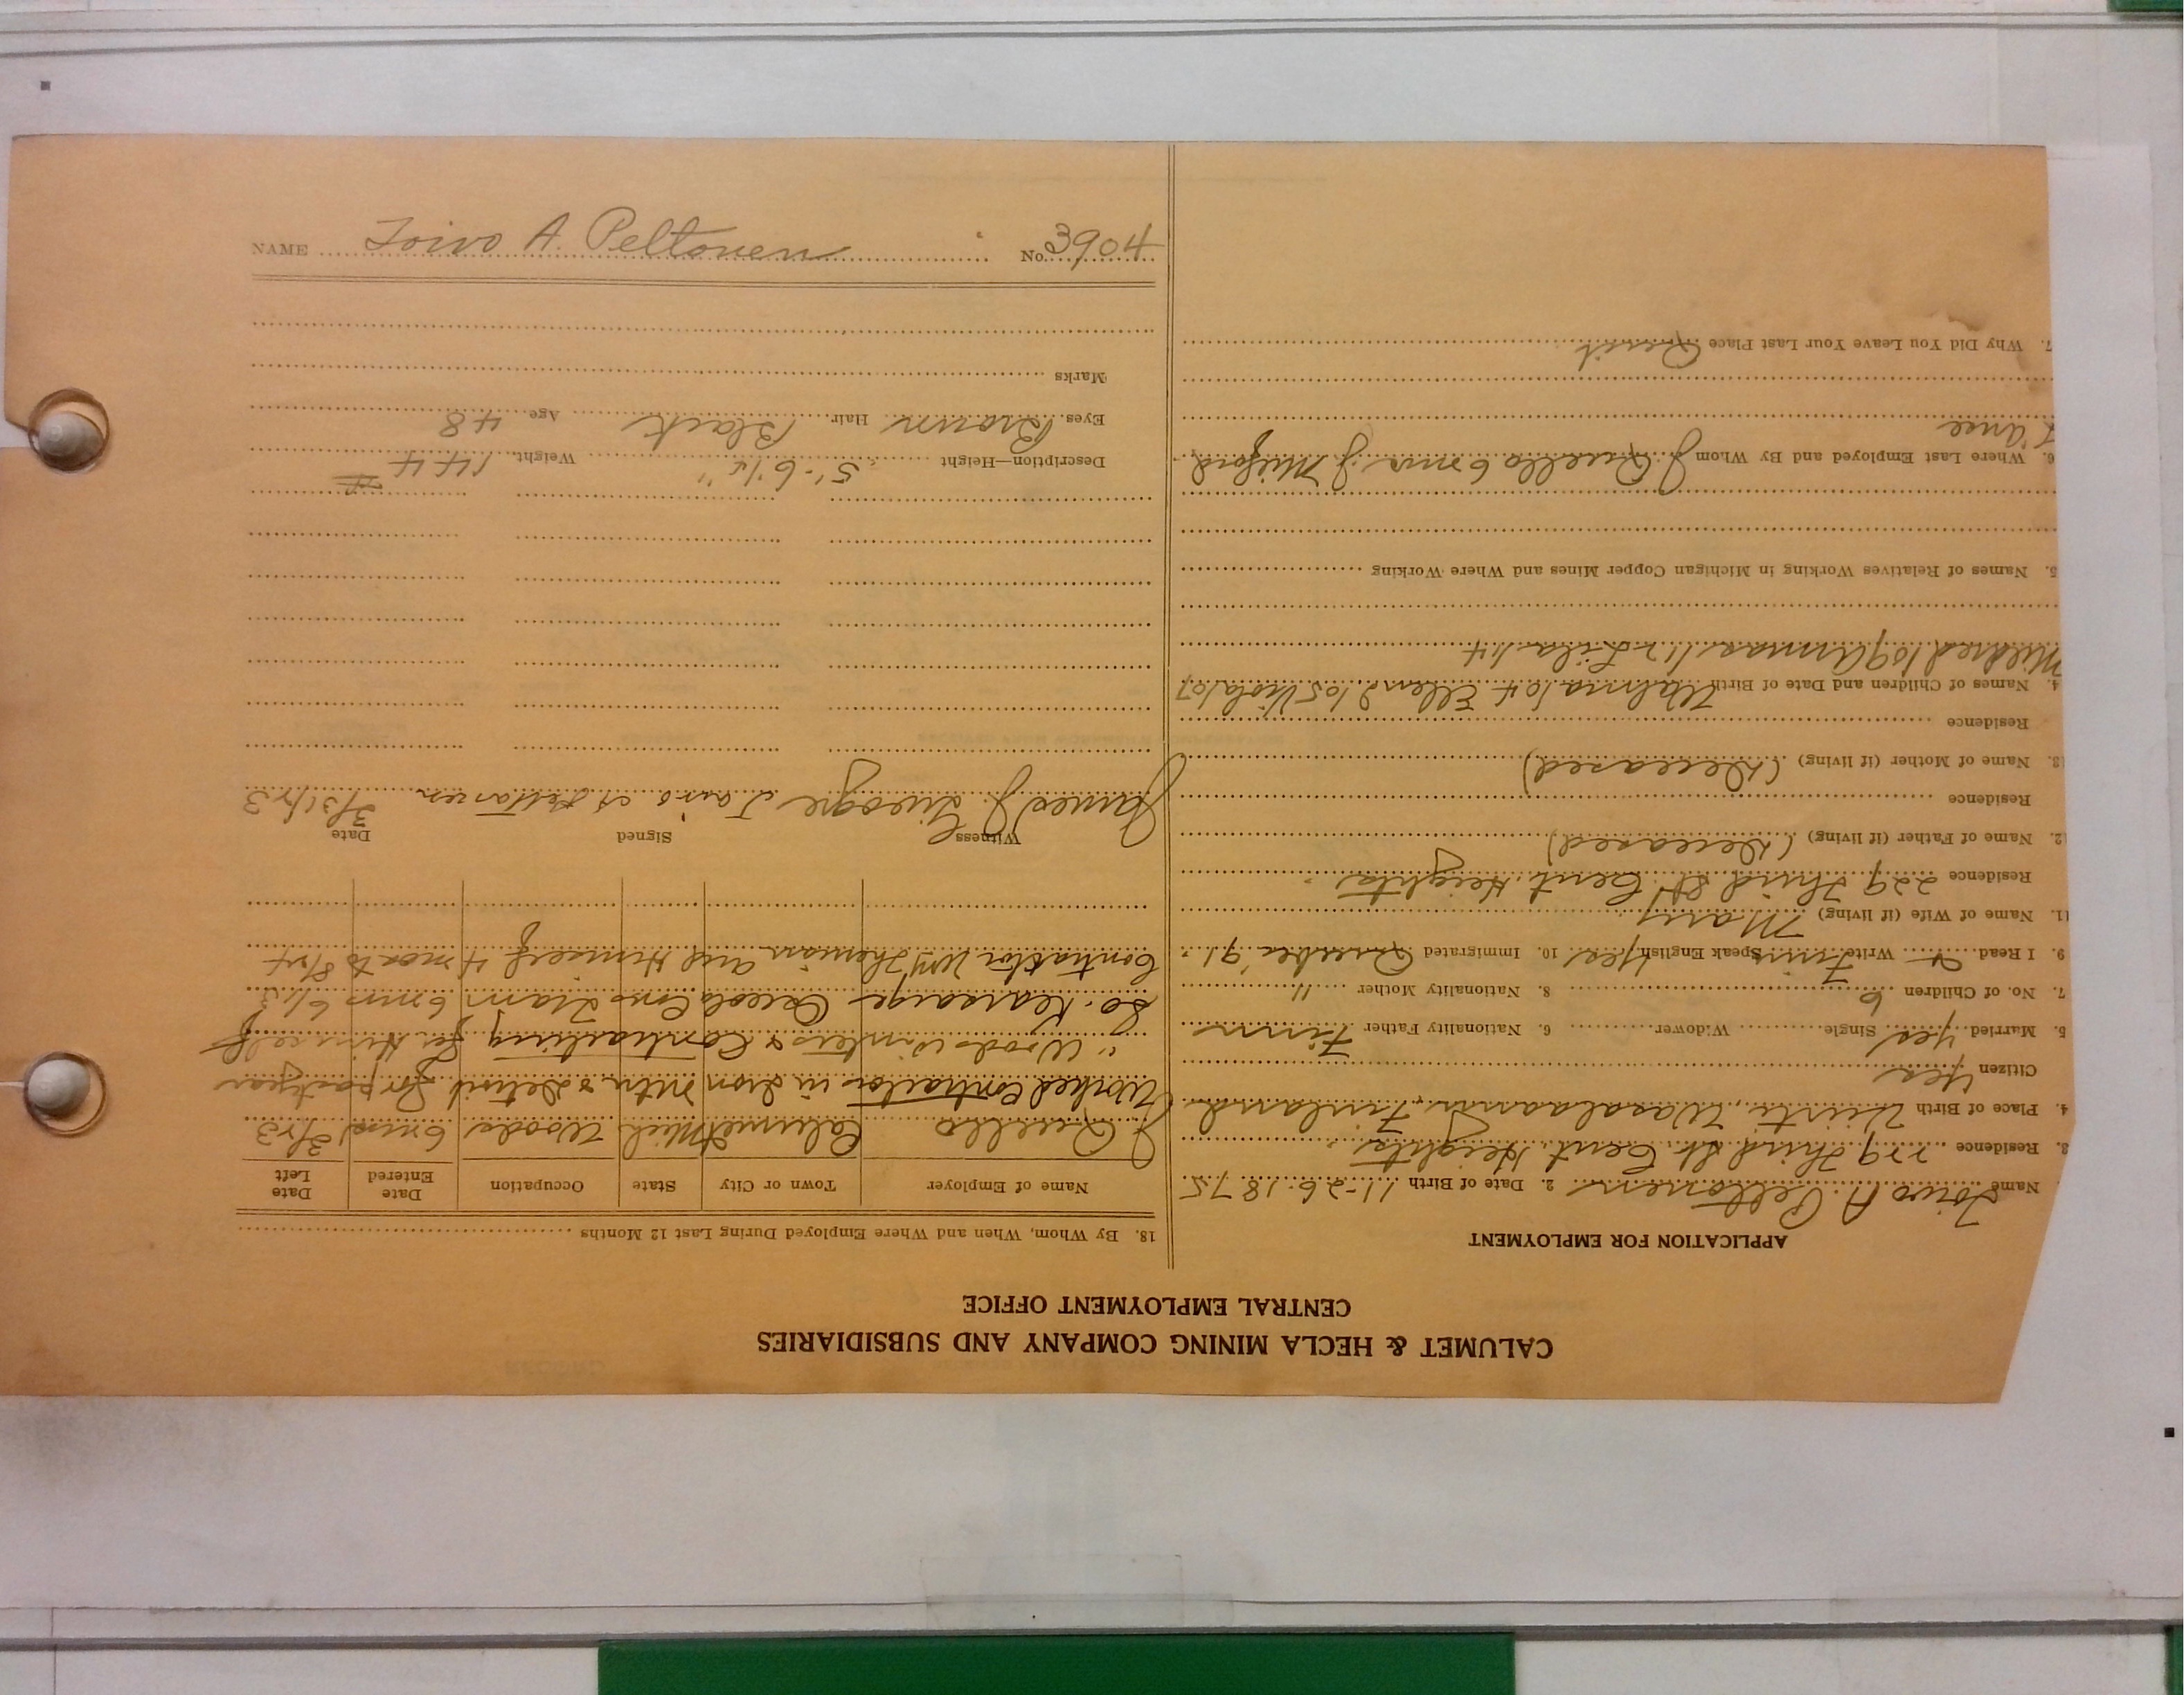 CALUMET & HECLA MINING COMPANY AND SUBSIDIARIES
CENTRAL EMPLOYMENT OFFICE
APPLICATION FOR EMPLOYMENT
Name Toivo A. Peltonen 2. Date of Birth 11-26-1875
3. Residence 229 Third St. Cent. Heights
4. Place of Birth Wasalaani, Finland
Citizen Yes
5. Married Yes Single Widower 6. Nationality Father Finn
7. No. of Children 6 8. Nationality Mother "
9. I Read Write Finn Speak English Yes 10. Immigrated Quebec '91
11. Name of Wife (if living) Mary
Residence 229 Third St. Cent. Heights
12. Name of Father (if living) (Deceased)
Residence
13. Name of Mother (if living) (Deceased)
Residence
4. Names of Children and Date of Birth Walma 104 Ellen 2/05 Viola 107
Mildred 109 112 Lila 114
5. Names of Relatives Working in Michigan Copper Mines and Where Working
6. Where Last Employed and By Whom J. Ruello 6 mos
7. Why Did You Leave Your Last Place Quit
18. By Whom, When and Where Employed During Last 12 Months
Name of Employer Town or City State Occupation Date Entered Date Left
J. Ruello Calumet Mich Woods 6 mos 3/23
Worked Contractor in Iron Mtn & Detroit for past year
" Woods winters & Contracting for Himself
So. Kearsarge Osceola Cons 6 mos 6/13
Contractor Wm and Himself 4 mos to 8/24
Witness Signed Date
James J. Toivo A Peltonen 3/31/23
Description—Height 5'-6 1/2" Weight 144 #
Eyes Brown Hair Black Age 48
Marks
NAME Toivo A. Peltonen No. 3904